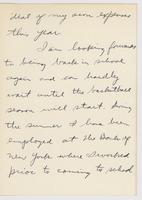 that of my own expenses
this year.
I am looking forward
to being back in school
again and can hardly
wait until the basketball
season will start. During
the summer I have been
employed at The Bank of
New York where I worked
prior to coming to school